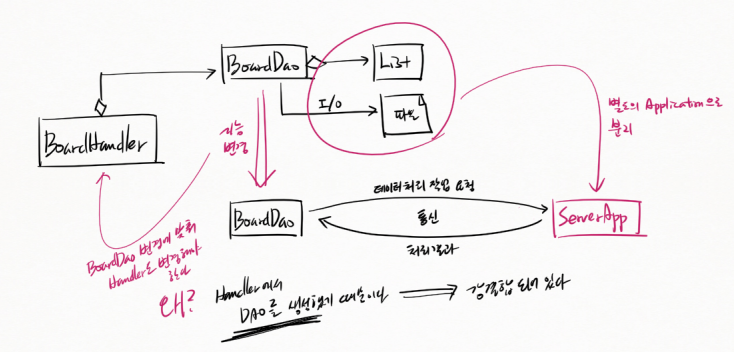 BoardDao
List
I/O
파일
BoardHandler
기능
변경
별도의 Application으로
분리
데이터처리 작업 요청
BoardDao
통신
ServerApp
처리결과
BoardDao 변경에 맞춰
Handler도 변경해야
한다
왜?
Handler에서
DAO를 생성했기 때문이다
강결합 되어 있다